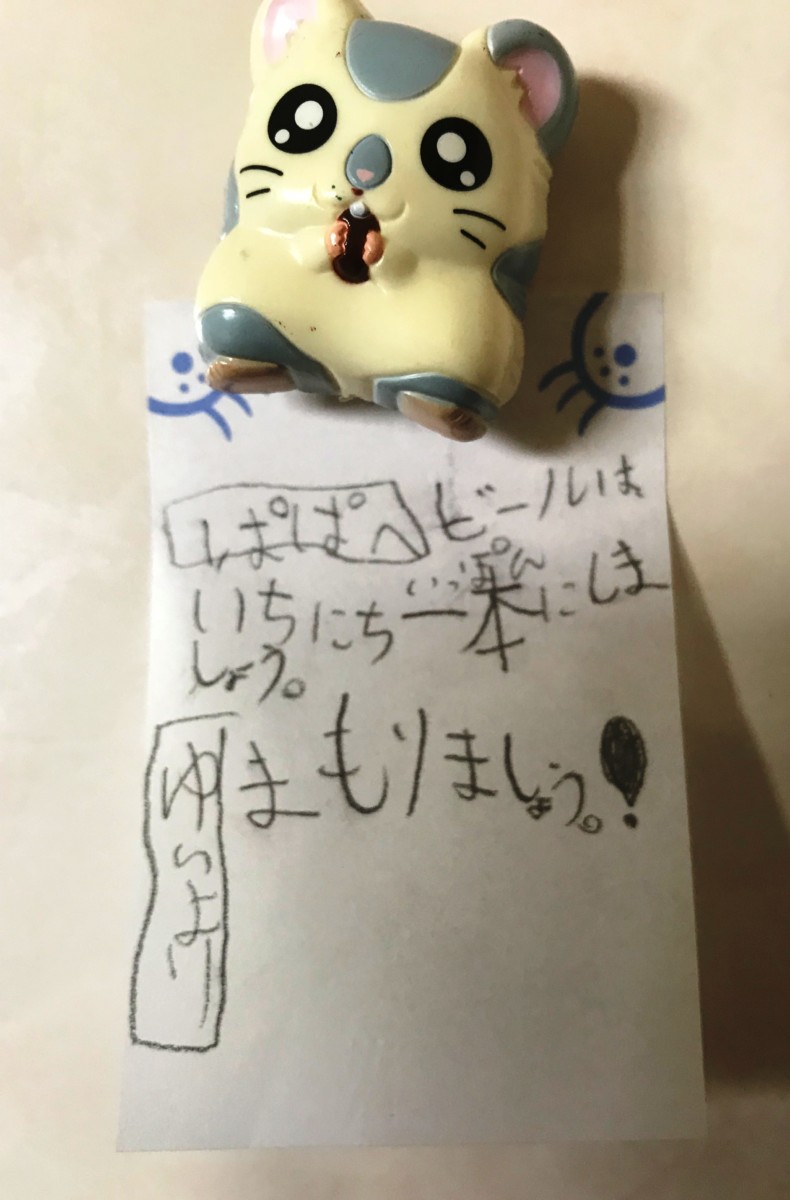 ぱぱへ ビールは
いちにち一本にしま
いっぽん
しょう。
まもりましょう。!
ゆうより